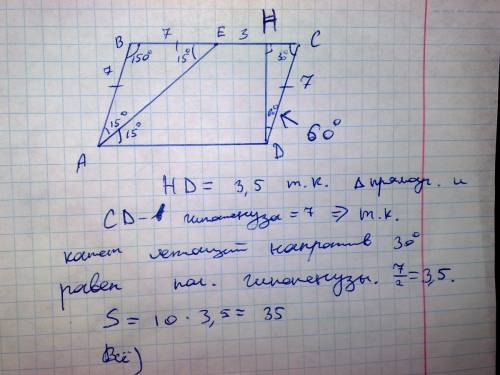 B 7 E 3 H C
150° 15° 30°
7 7
15° 15° 60°
A D
HD = 3,5 т.к. Δ прямоуг. и
CD - гипотенуза = 7 => т.к.
катет лежащий напротив 30°
равен пол. гипотенузы. 7/2 = 3,5.
S = 10 · 3,5 = 35
Всё)